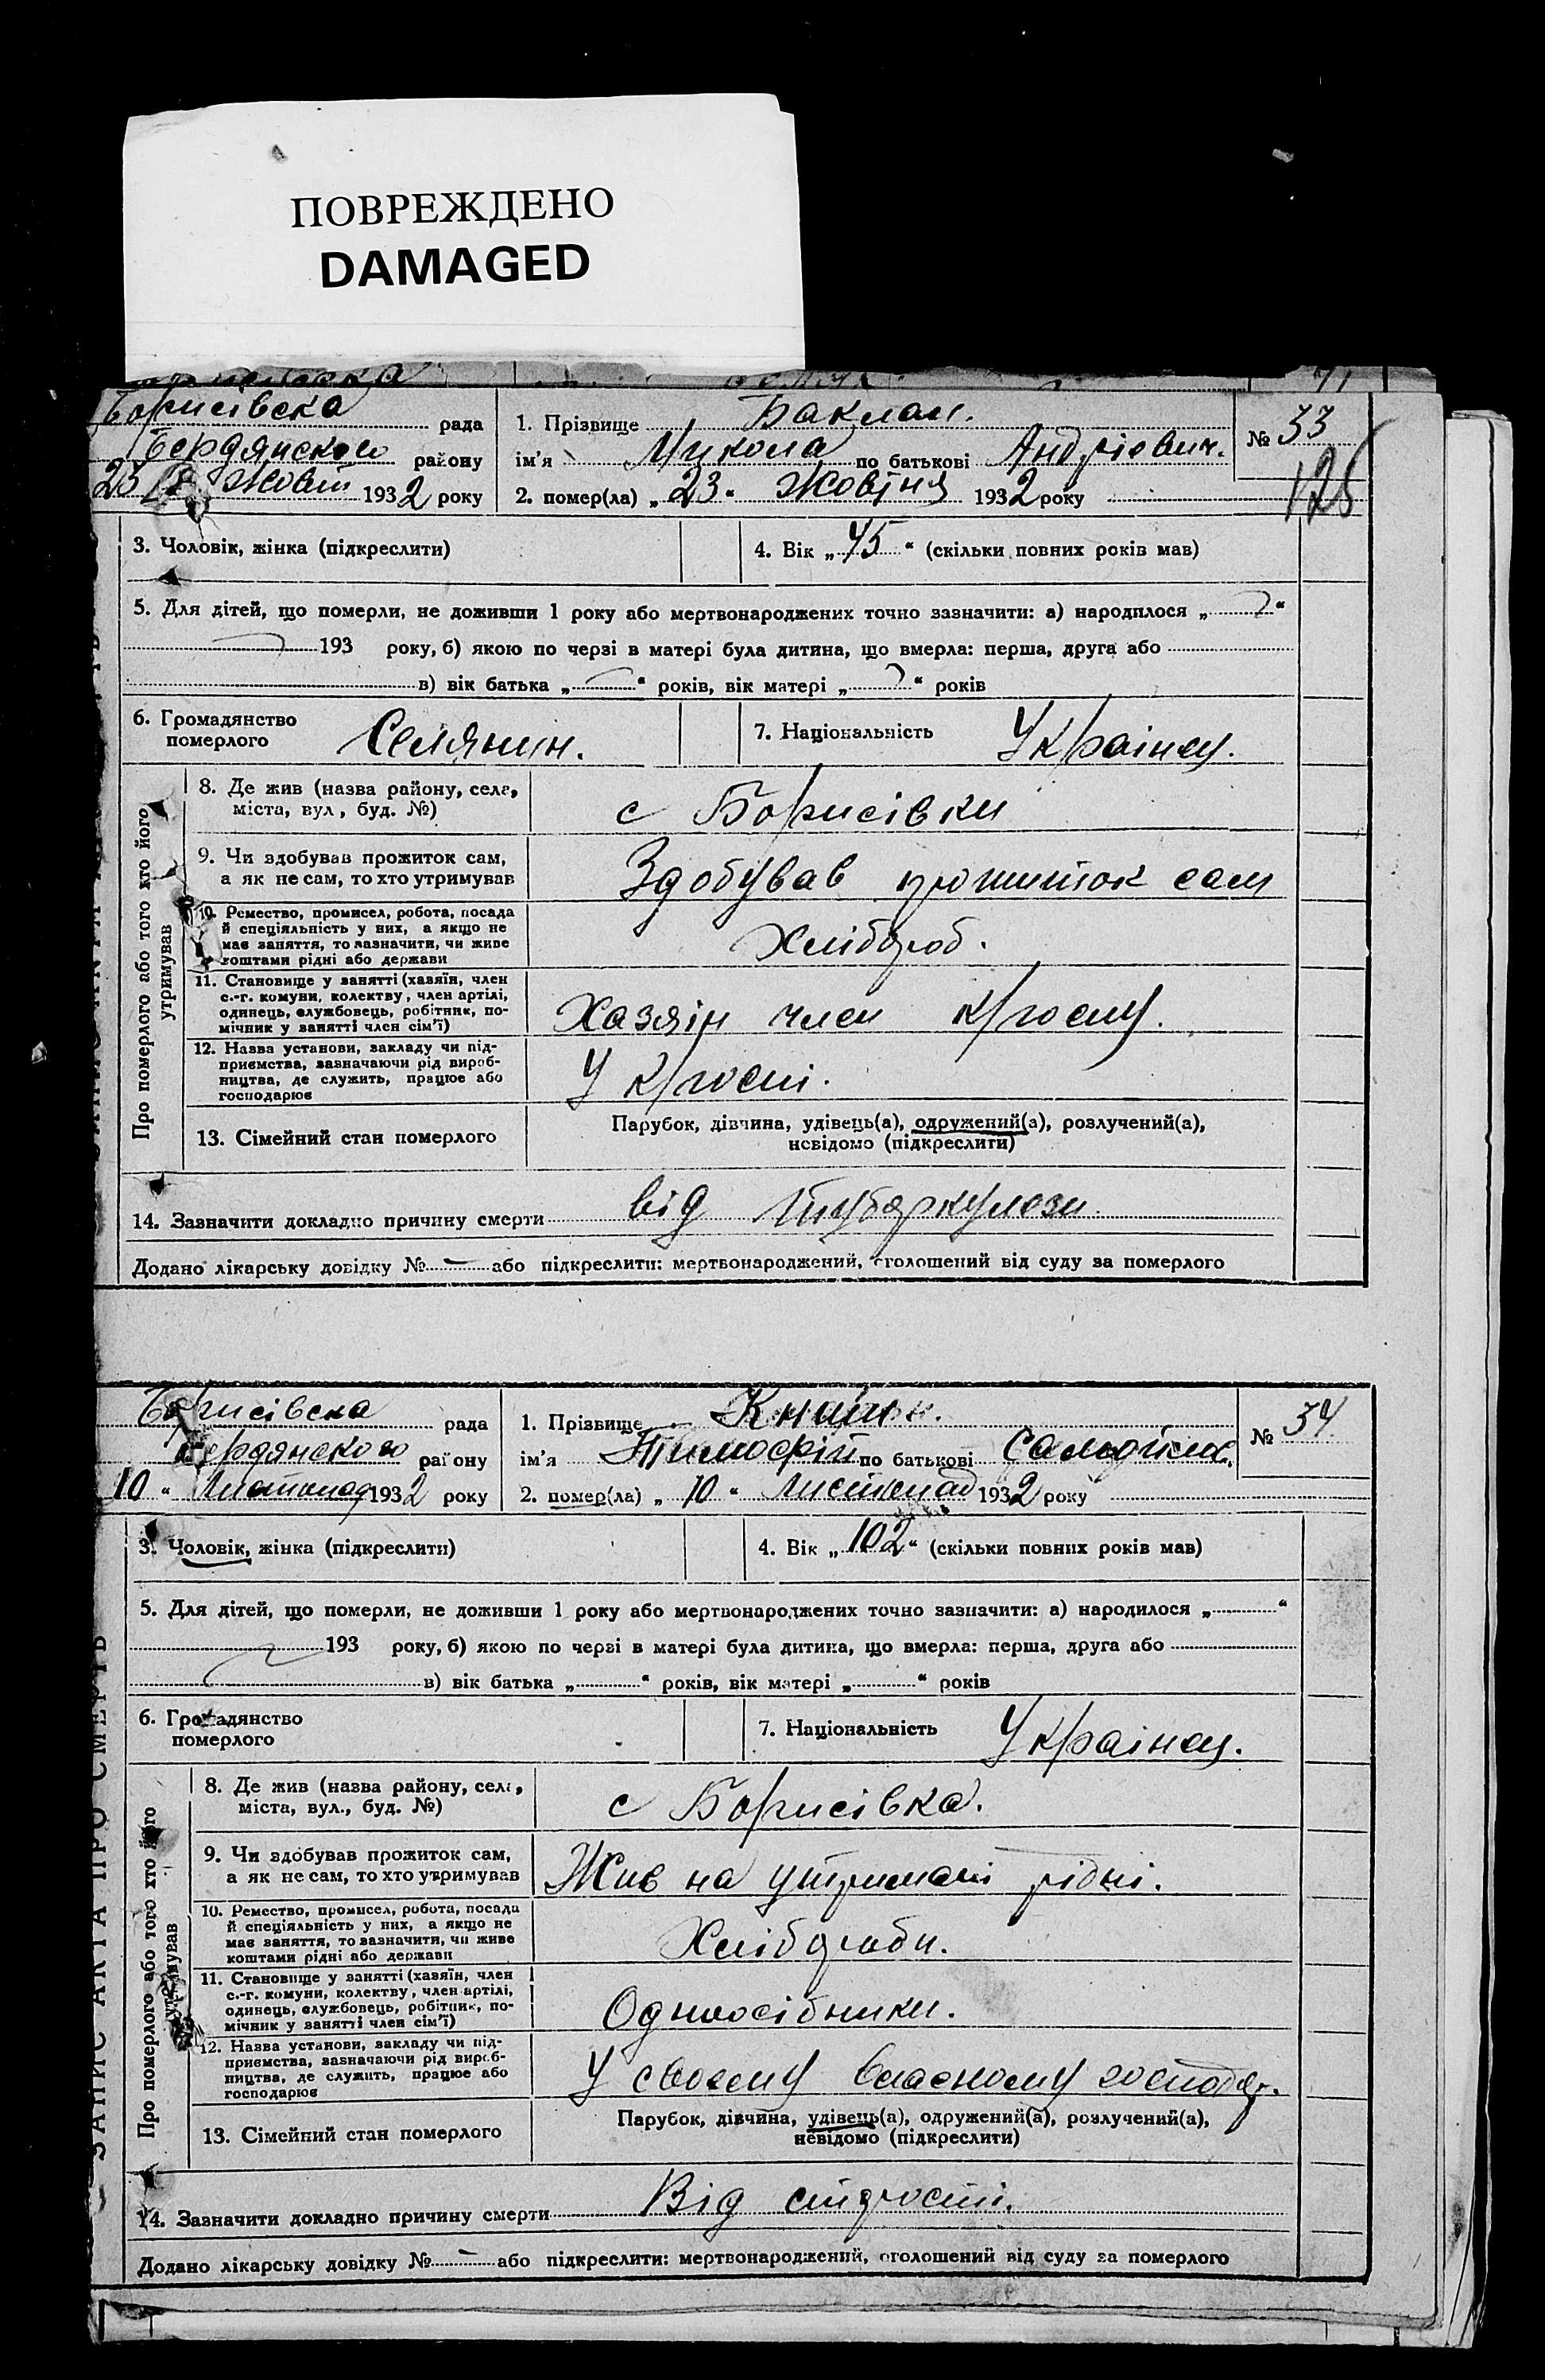 ПОВРЕЖДЕНО
DAMAGED
Борисівска рада
Бердянского району
23 Жовт 1932 року
1. Прізвище Баклан.
ім'я Микола по батькові Андрієвич.
№ 33
2. помер(ла) „23" Жовтня 1932 року
125
3. Чоловік, жінка (підкреслити)
4. Вік „45" (скільки повних років мав)
5. Для дітей, що померли, не доживши 1 року або мертвонароджених точно зазначити: а) народилося „ "
193 року, б) якою по черзі в матері була дитина, що вмерла: перша, друга або
в) вік батька „ " років, вік матері „ " років
6. Громадянство
померлого Селянин.
7. Національність Украінец.
Про померлого або того хто його
утримував
8. Де жив (назва району, села,
міста, вул., буд. №)
с Борисівки
9. Чи здобував прожиток сам,
а як не сам, то хто утримував
Здобував прошиток сам
10. Ремество, промисел, робота, посада
й спеціяльність у них, а якщо не
має заняття, то зазначити, чи живе
коштами рідні або держави
Хлібороб.
11. Становище у занятті (хазяїн, член
с.-г. комуни, колективу, член артілі,
одинець, службовець, робітник, по-
мічник у занятті член сім'ї)
Хазяін член к/госпу.
12. Назва установи, закладу чи під-
приємства, зазначаючи рід вироб-
ництва, де служить, працює або
господарює
У к/госпі.
13. Сімейний стан померлого
Парубок, дівчина, удівець(а), одружений(а), розлучений(а),
невідомо (підкреслити)
14. Зазначити докладно причину смерти від туберкулози.
Додано лікарську довідку № — або підкреслити: мертвонароджений, оголошений від суду за померлого
Борисівска рада
Бердянского району
10 " Листопад 1932 року
1. Прізвище
ім'я Тимофій по батькові
№ 34
2. помер(ла) „10" Листопад 1932 року
3. Чоловік, жінка (підкреслити)
4. Вік „102" (скільки повних років мав)
5. Для дітей, що померли, не доживши 1 року або мертвонароджених точно зазначити: а) народилося „ "
193 року, б) якою по черзі в матері була дитина, що вмерла: перша, друга або
в) вік батька „ " років, вік матері „ " років
6. Громадянство
померлого
7. Національність Украінец.
ЗАПИС АКТА ПРО СМЕРТЬ
Про померлого або того хто його
утримував
8. Де жив (назва району, села,
міста, вул., буд. №)
с Борисівка.
9. Чи здобував прожиток сам,
а як не сам, то хто утримував
Жив на утримані рідні.
10. Ремество, промисел, робота, посада
й спеціяльність у них, а якщо не
має заняття, то зазначити, чи живе
коштами рідні або держави
Хлібороби.
11. Становище у занятті (хазяїн, член
с.-г. комуни, колективу, член артілі,
одинець, службовець, робітник, по-
мічник у занятті член сім'ї)
Одноосібники.
12. Назва установи, закладу чи під-
приємства, зазначаючи рід вироб-
ництва, де служить, працює або
господарює
У своєму власному господар.
13. Сімейний стан померлого
Парубок, дівчина, удівець(а), одружений(а), розлучений(а),
невідомо (підкреслити)
14. Зазначити докладно причину смерти Від старости.
Додано лікарську довідку № — або підкреслити: мертвонароджений, оголошений від суду за померлого